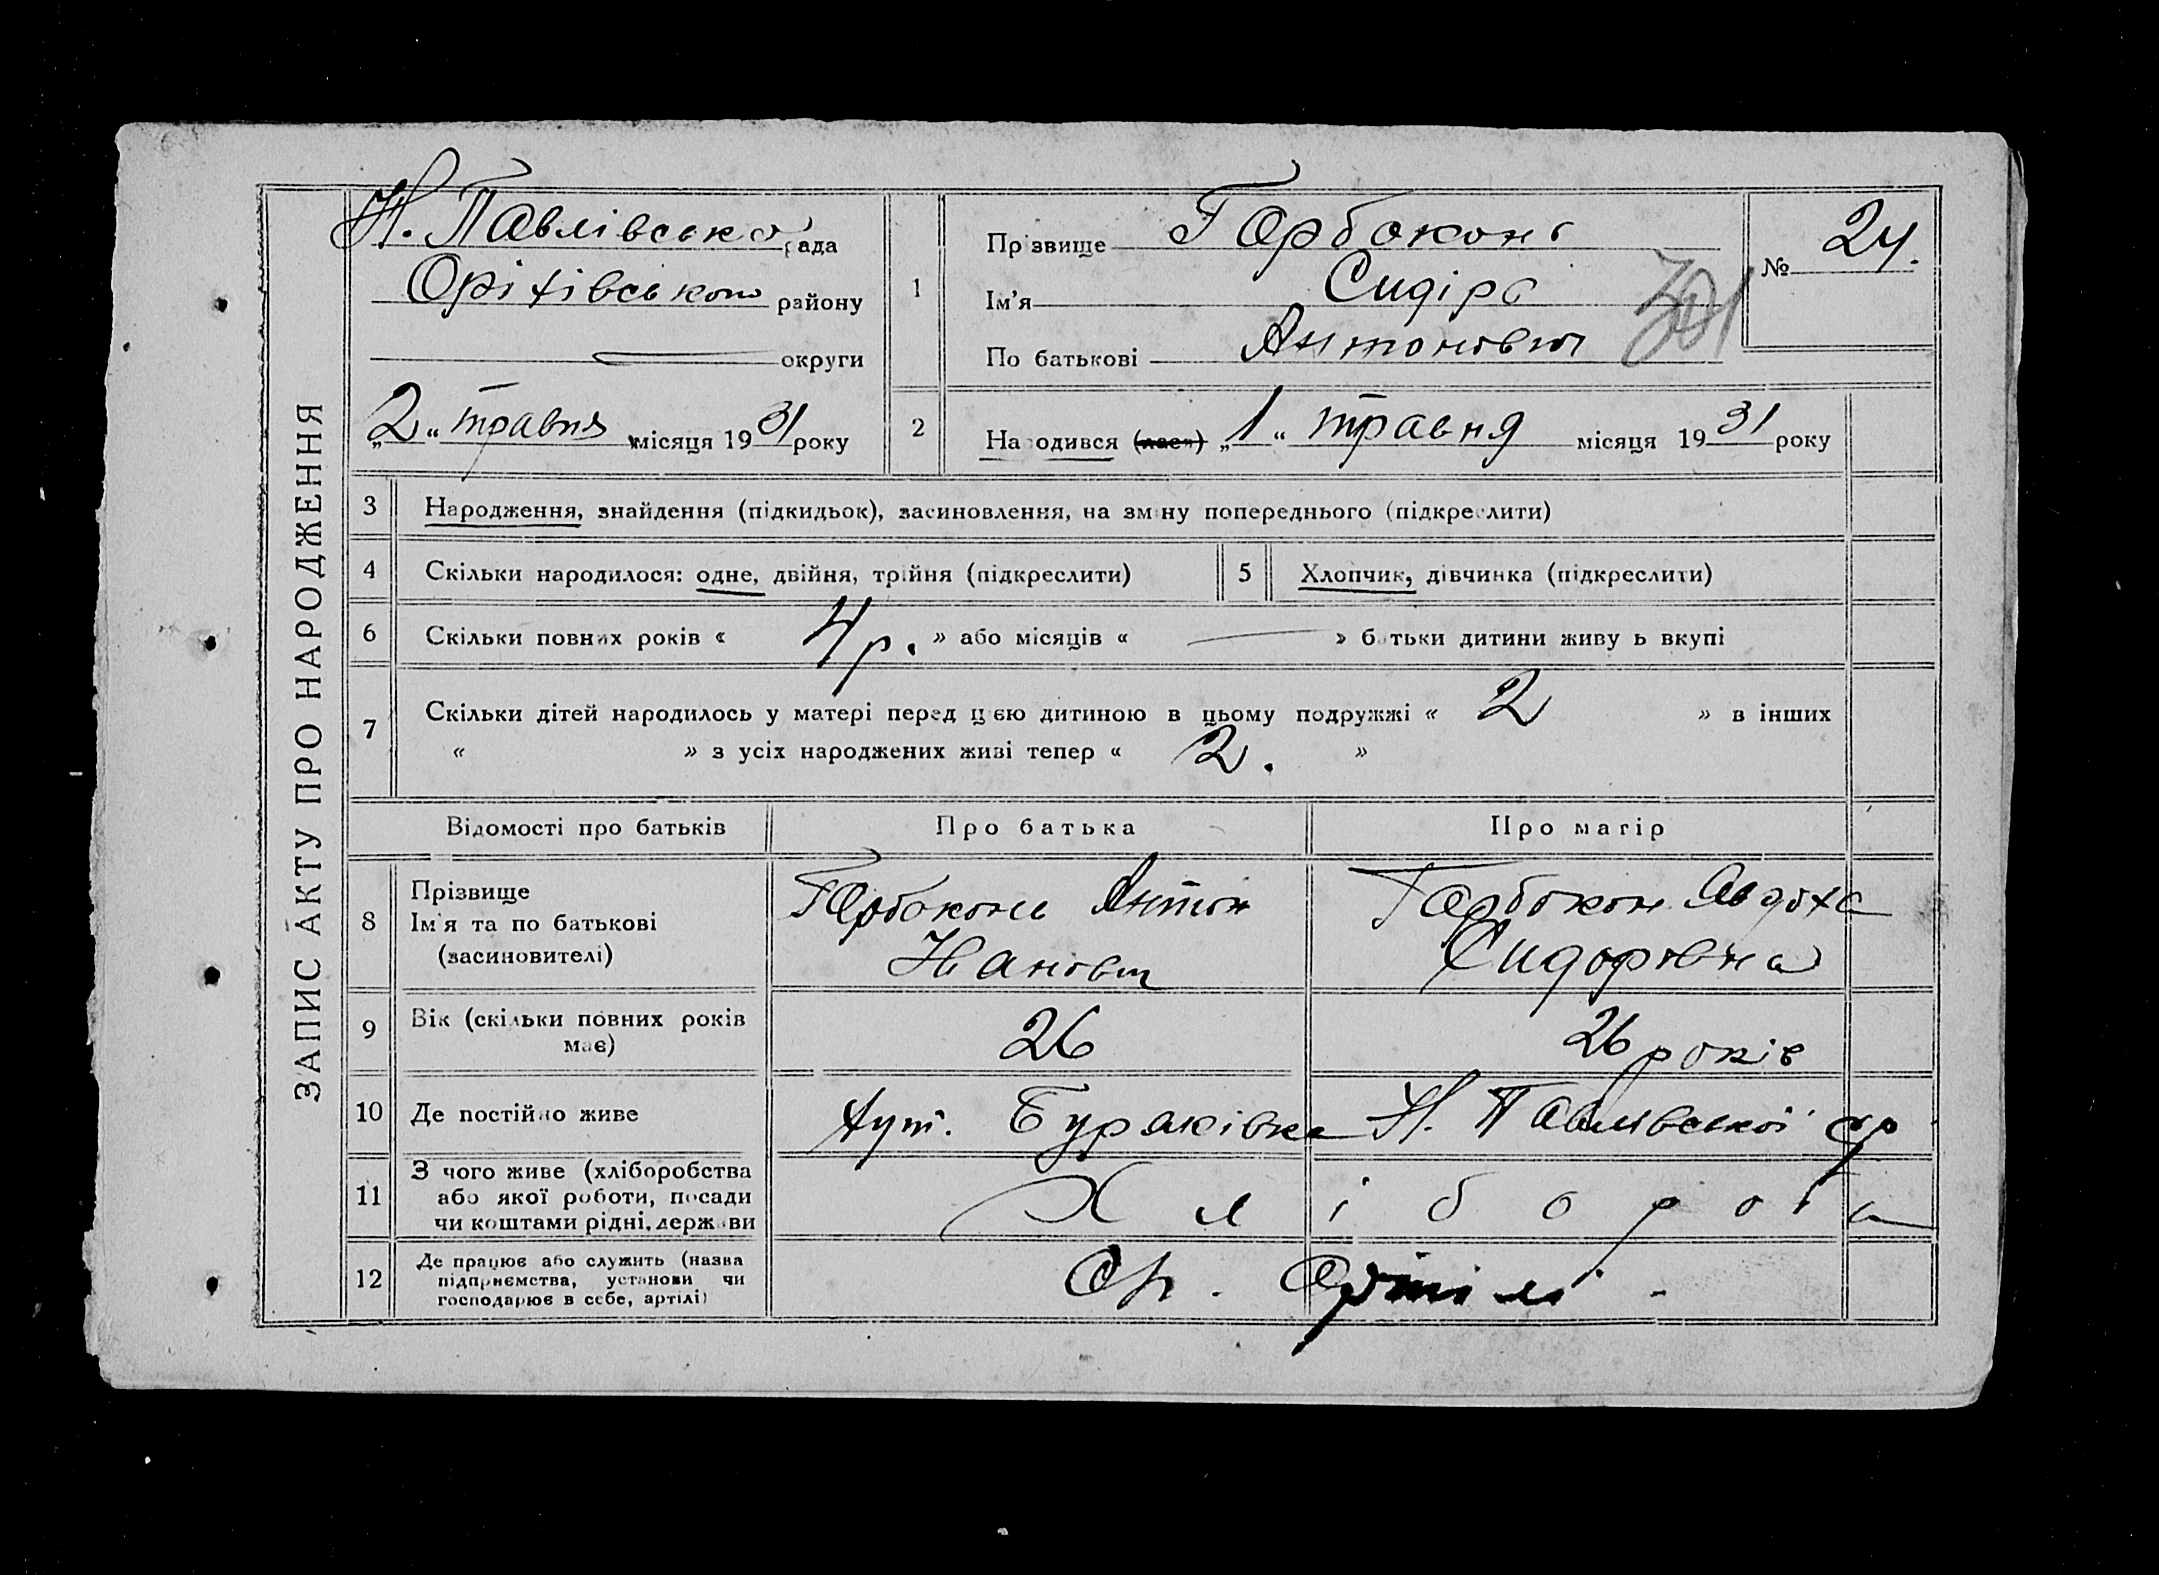 ЗАПИС АКТУ ПРО НАРОДЖЕННЯ
Н. Павлівська рада
Оріхівського району
округи
„2“ травня місяця 1931 року
1
Прізвище Горбоконь
Ім'я Сидір
По батькові Антонович
№ 24.
2
Народився (лась) „1“ травня місяця 1931 року
3 Народження, знайдення (підкидьок), засиновлення, на зміну попереднього (підкреслити)
4 Скільки народилося: одне, двійня, трійня (підкреслити) 5 Хлопчик, дівчинка (підкреслити)
6 Скільки повних років « 4 р. » або місяців « — » батьки дитини живуть вкупі
7 Скільки дітей народилось у матері перед цією дитиною в цьому подружжі « 2 » в інших
« » з усіх народжених живі тепер « 2. »
Відомості про батьків Про батька Про матір
8 Прізвище
Ім'я та по батькові
(засиновителі)
Горбоконь Антон
Іванович
Горбоконь Явдоха
Сидоровна
9 Вік (скільки повних років
має)
26
26 років
10 Де постійно живе хут. Буряківка Н. Павлівської с/р
11 З чого живе (хліборобства
або якої роботи, посади
чи коштами рідні, держави
Хлібороба
12 Де працює або служить (назва
підприємства, установи чи
господарює в себе, артілі)
артілі